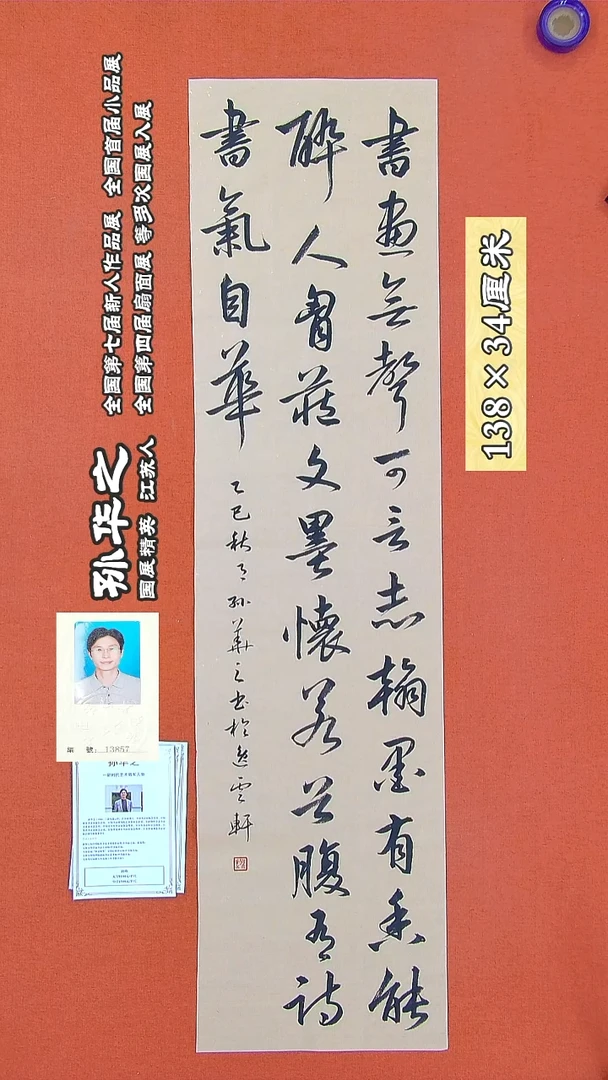 書畫無聲可言志翰墨有香能
醉人胷藏文墨懷若谷腹有詩
書氣自華
乙巳秋月孫華之書於逸雲軒
138×34厘米
全国第七届新人作品展 全国首届小品展
全国第四届扇面展 等多次国展入展
孙华之
国展精英 江苏人
編 號: 13857
孙华之